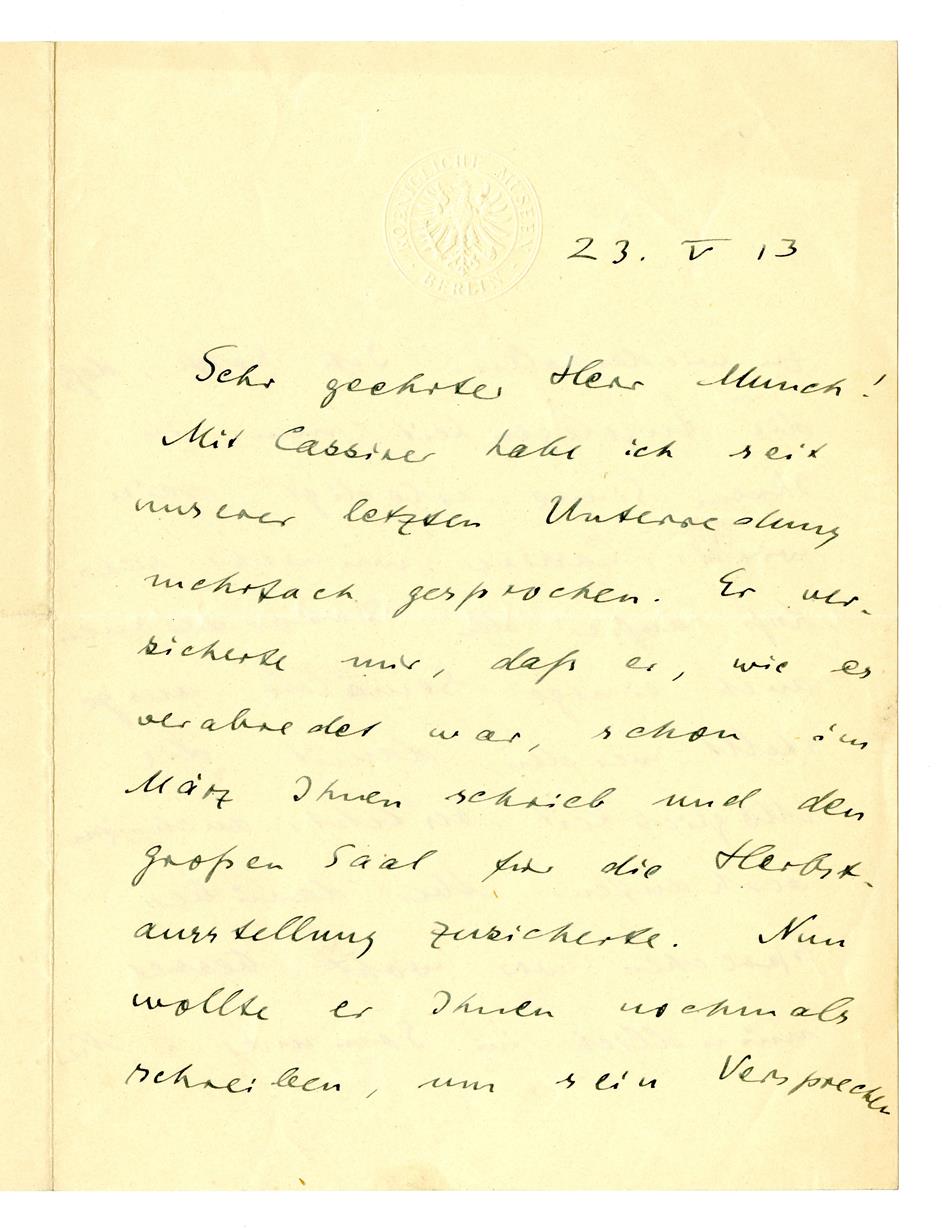 KOENIGLICHE MUSEEN
· BERLIN ·
23. V 13
Sehr geehrter Herr Munch!
Mit Cassirer habe ich seit
unserer letzten Unterredung
mehrfach gesprochen. Er ver-
sicherte mir, daß er, wie es
verabredet war, schon im
März Ihnen schrieb und den
großen Saal für die Herbst-
ausstellung zusicherte. Nun
wollte er Ihnen nochmals
schreiben, um sein Versprechen